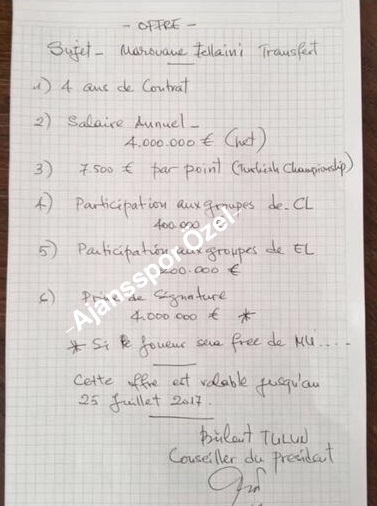 - OFFRE -
Sujet - Marouane Fellaini Transfert
1) 4 ans de Contrat
2) Salaire Annuel -
4.000.000 € (net)
3) 7.500 € par point (Turkish Championship)
4) Participation aux groupes de CL
400.000
5) Participation aux groupes de EL
200.000 €
6) Prime de Signature
4.000.000 € *
* Si le Joueur sera free de MU....
Cette offre est valable jusqu'au
25 Juillet 2017.
Bülent TULUN
Conseiller du président
-Ajansspor Özel-